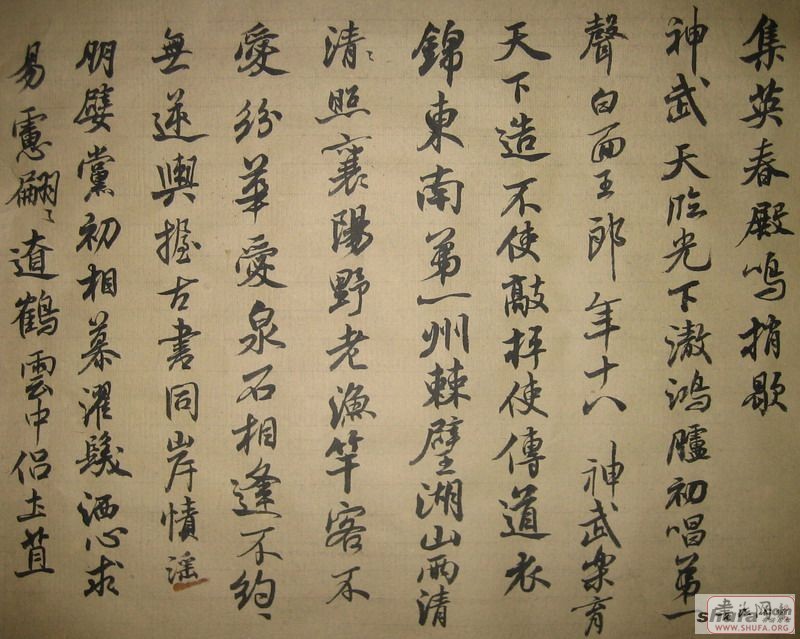 集英春殿鳴捎歇
神武天臨光下澈鴻臚初唱第一
聲白面王郎年十八 神武樂育
天下造不使敲枰使傳道衣
錦東南第一州棘璧湖山兩清
清〻照襄陽野老漁竿客不
愛紛華愛泉石相逢不約〻
無逆輿握古書同岸幘滛
朋嬖黨初相慕濯髮洒心求
易慮翩〻遼鶴雲中侶土苴
WWW.SHUFA.ORG